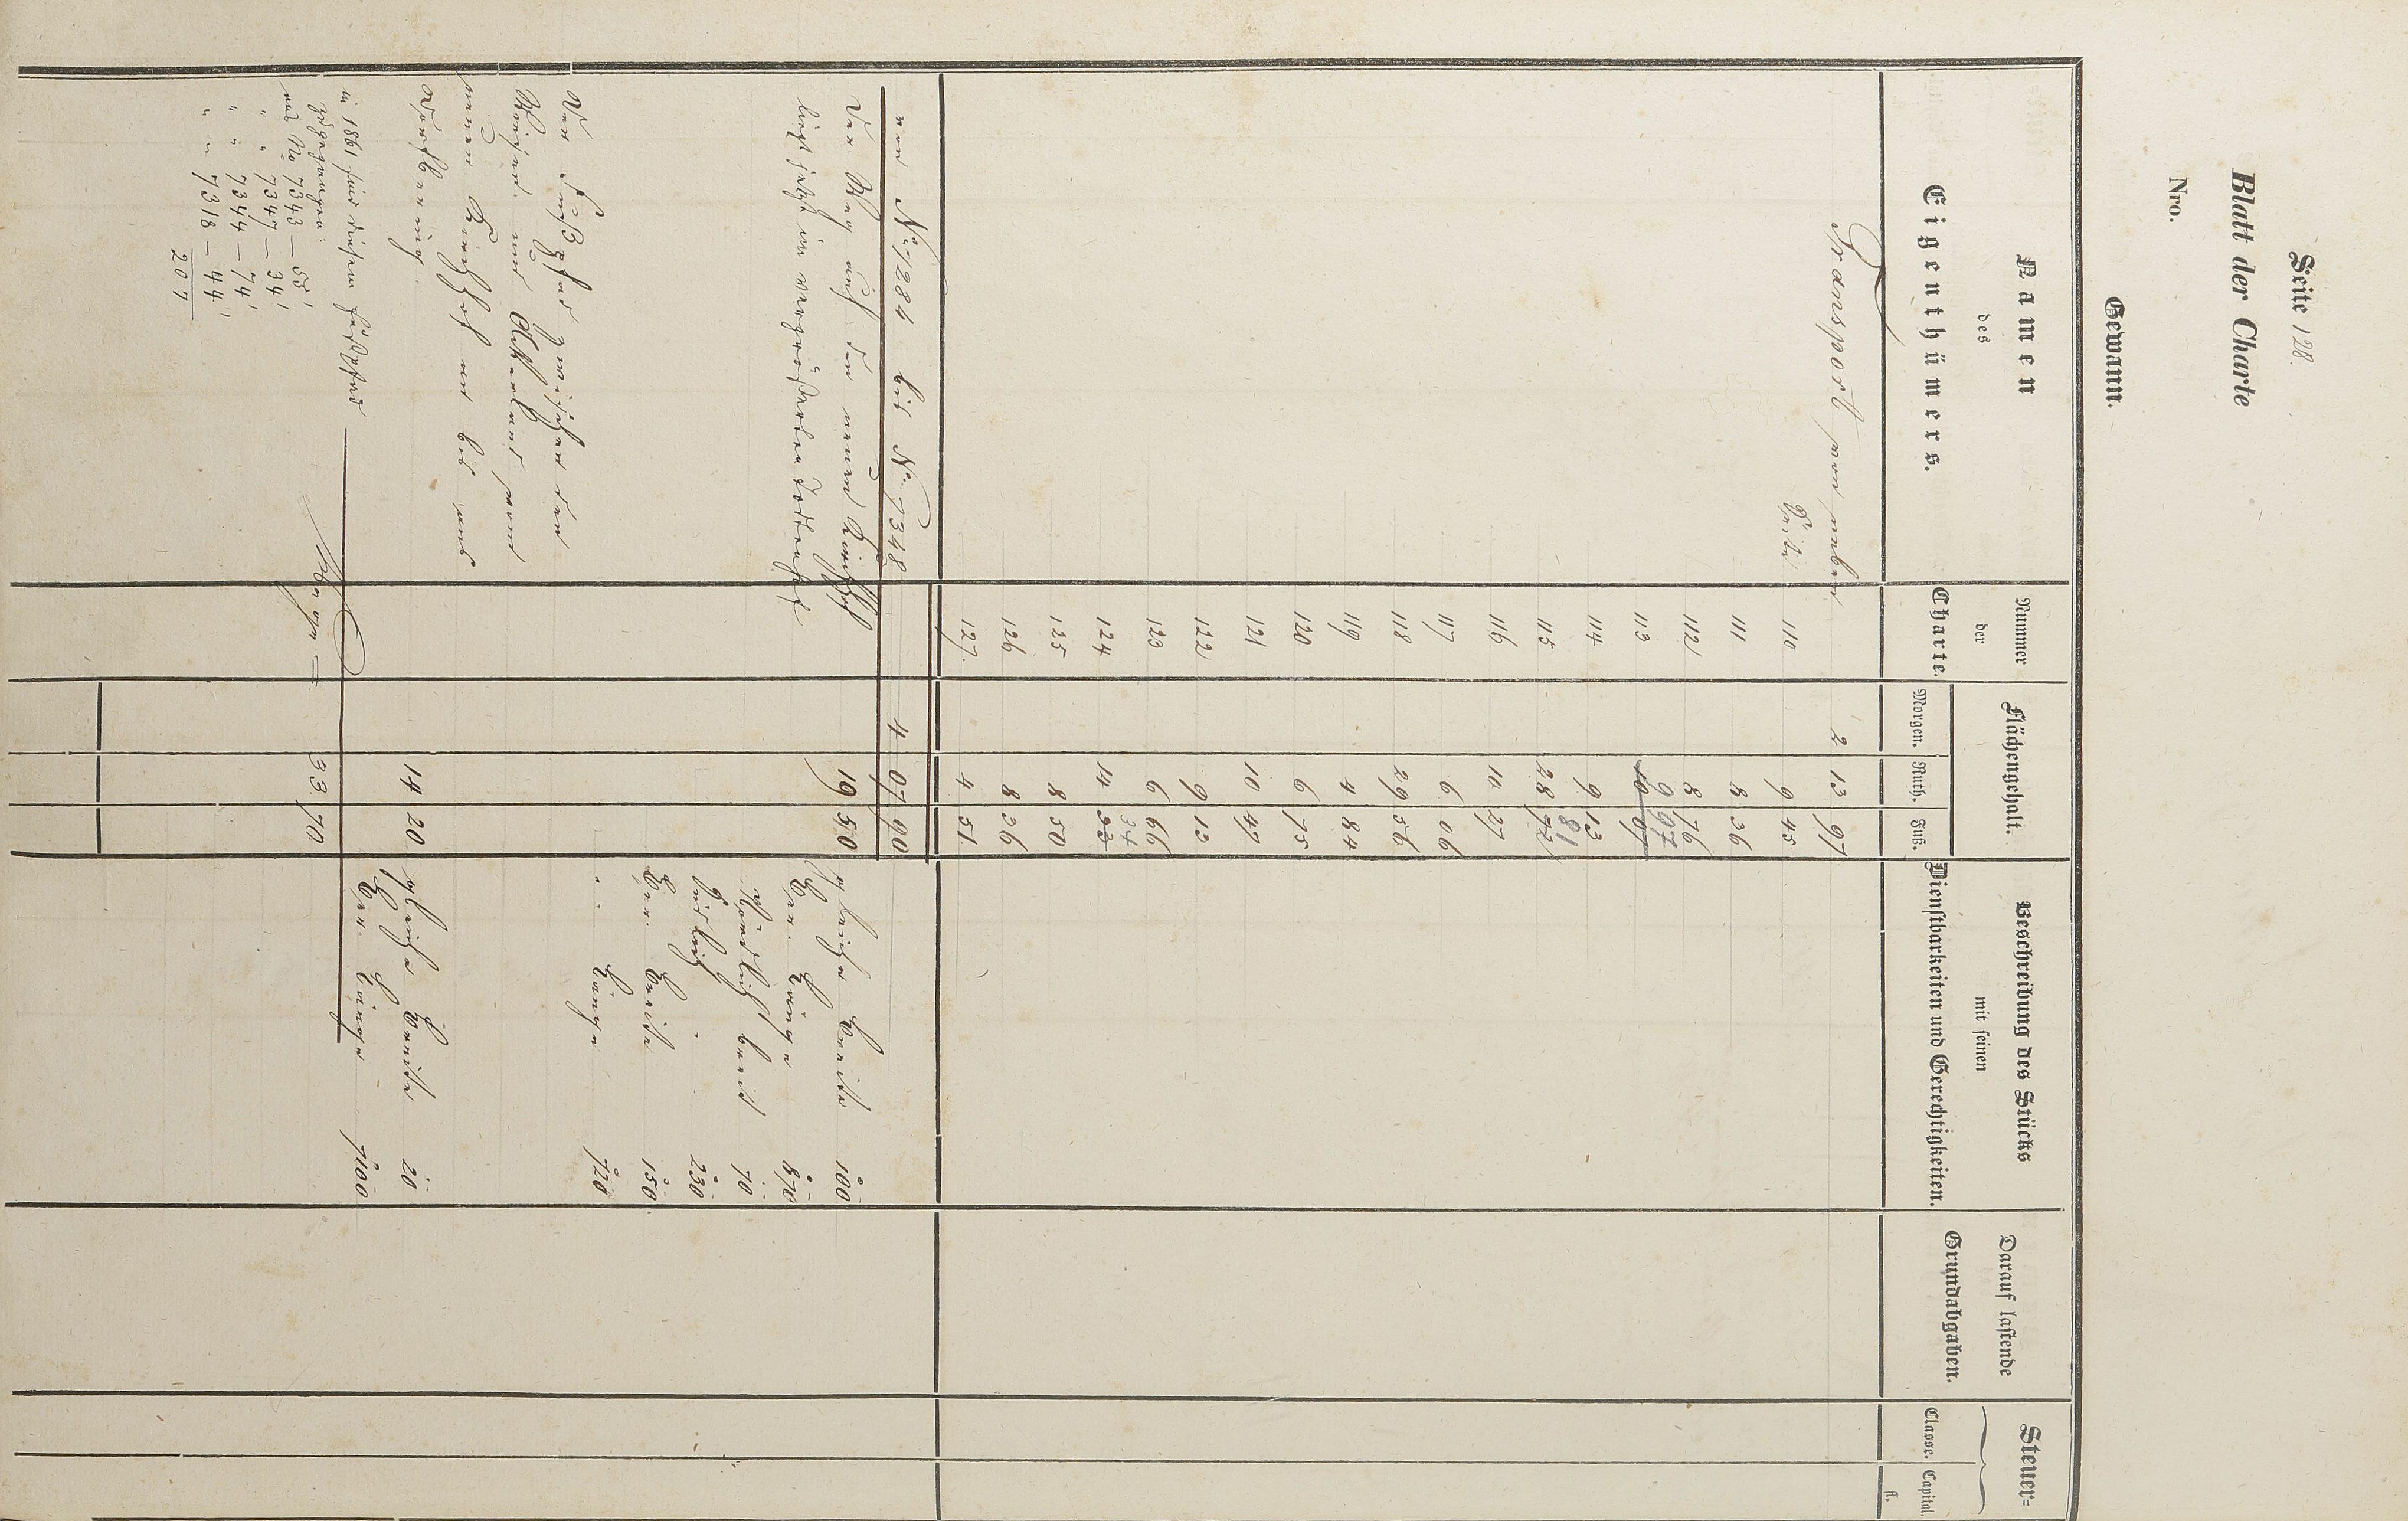 Seite 128.
Blatt der Charte
Nro.
Gewann.
Namen
des
Eigenthümers.
Nummer
der
Charte.
Flächengehalt.
Morgen. Ruth. Fuß.
Beschreibung des Stücks
mit seinen
Dienstbarkeiten und Gerechtigkeiten.
Darauf lastende
Grundabgaben.
Steuer-
Classe. Capital.
fl.
Transport von neben 2 13 97
Seite
110 9 45
111 8 36
112 8 76
9 97
113 10 07
114 9 13
81
115 28 73
116 10 27
117 6 06
118 29 56
119 4 84
120 6 75
121 10 47
122 9 13
123 6 66
34
124 14 33
125 8 50
126 8 36
127. 4 51
von No. 7284 bis No. 7348 4 07 90
Der Weg auf den neuen Kirchhof 19 50 gleiche Breite 100
liegt jetzt im vergrößerten Todtenhof der Länge 870
Nördlich breit 70
Südlich 230
der Breite 150
" Länge 720
Der Fußpfad zwischen den
Wiesen und Ackerland vom
neuen Kirchhof an bis ans
14 20 gleiche Breite 20
der Länge 7100
in 1861 sind diesem Fußpfad
zugegangen:
von No 7343 – 55'
" " 7347 – 34'
" " 7344 – 74'
" " 7318 – 44'
207
33 70